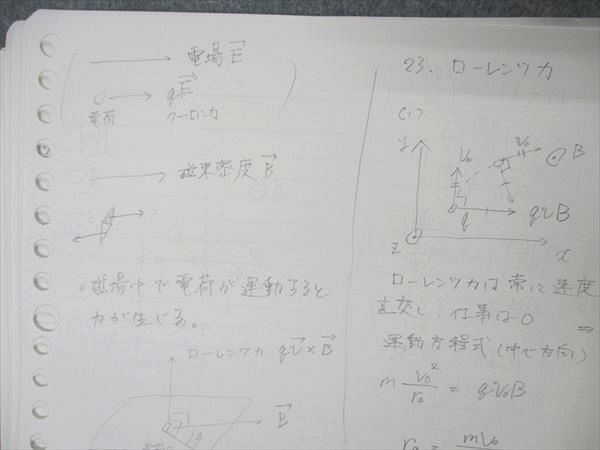 電場 E→
qE→
電荷
クーロン力
磁束密度 B→
。磁場中で電荷が運動すると
力が生じる。
ローレンツ力 qv→×B→
B→
θ
23. ローレンツ力
(1)
y
v₀
v₀
B
q
qvB
z
x
ローレンツ力は常に速度
直交し、仕事は0
⇒
運動方程式(中心方向)
m v₀²/r₀ = qv₀B
r₀ = mv₀